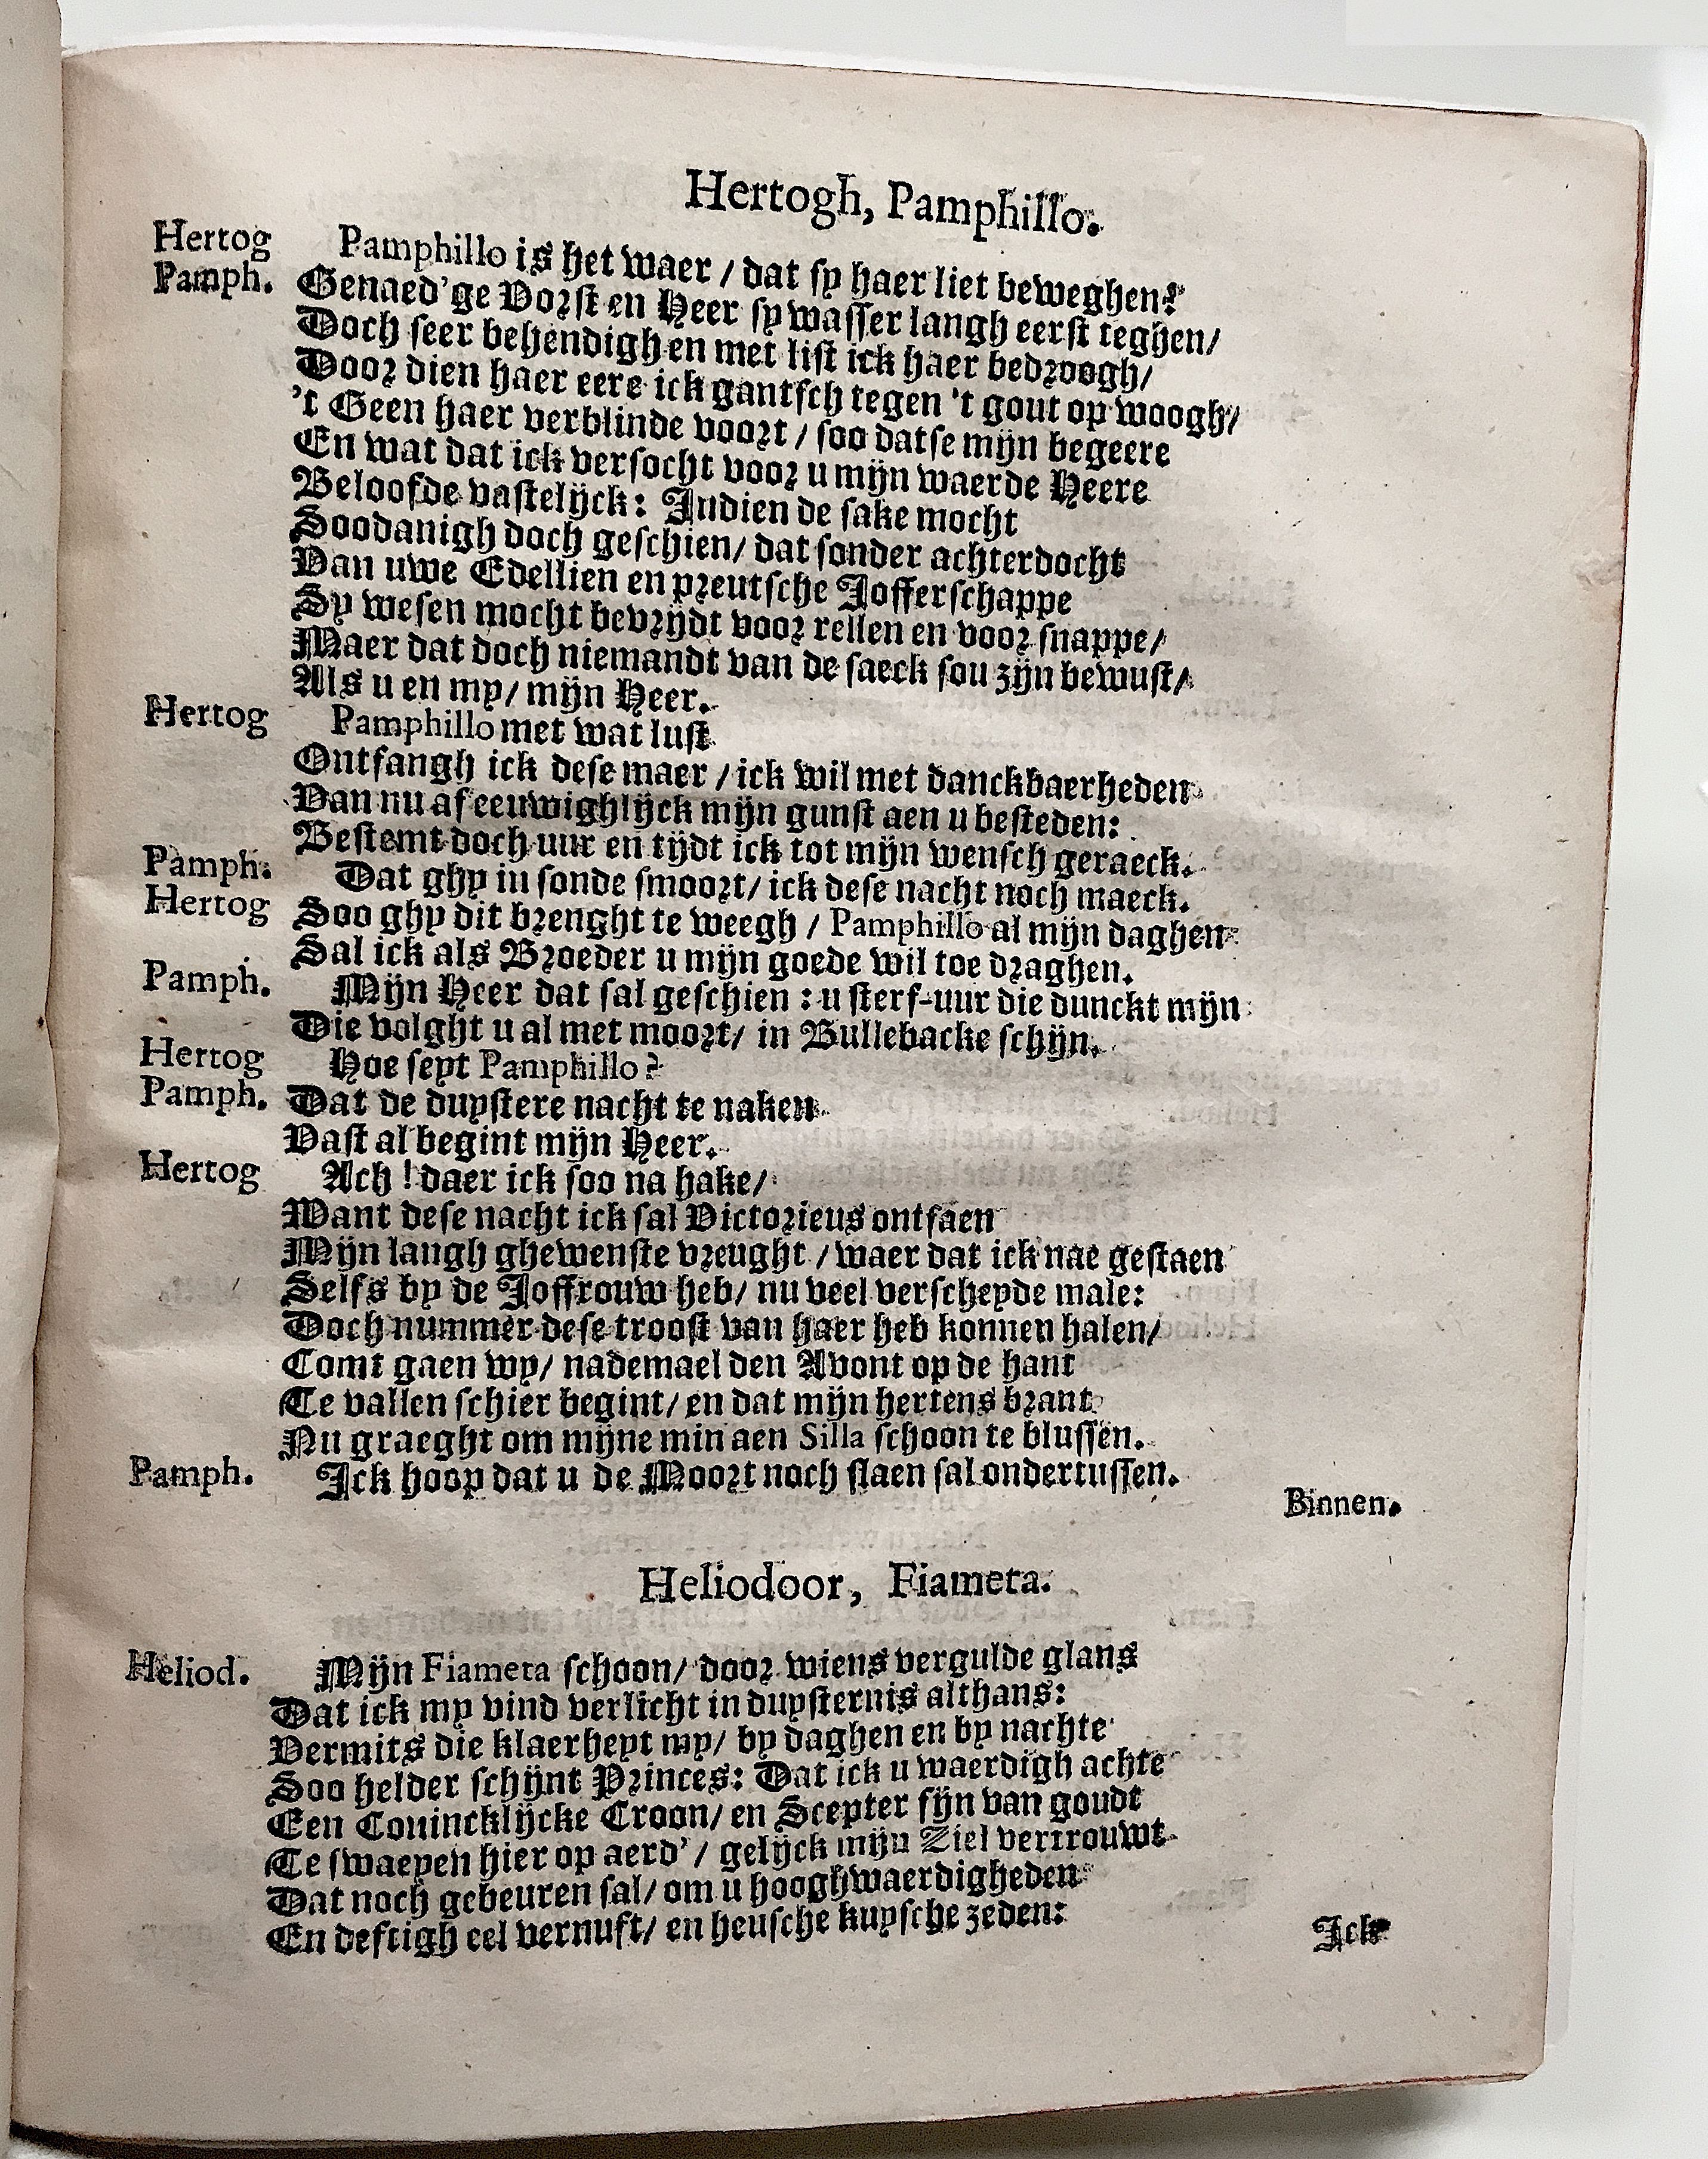 Hertogh, Pamphillo.
Hertog Pamphillo is het waer / dat sy haer liet beweghen?
Pamph. Genaed'ge Vorst en Heer sy wasser langh eerst teghen/
Doch seer behendigh en met list ick haer bedroogh/
Door dien haer eere ick gantsch tegen 't gout op woogh/
't Geen haer verblinde voort / soo datse mijn begeere
En wat dat ick versocht voor u mijn waerde Heere
Beloofde vastelijck: Indien de sake mocht
Soodanigh doch geschien/ dat sonder achterdocht
Van uwe Edellien en preutsche Jofferschappe
Sy wesen mocht bevrijdt voor rellen en voor snappe/
Maer dat doch niemandt van de saeck sou zijn bewust/
Als u en my/ mijn Heer.
Hertog Pamphillo met wat lust
Ontfangh ick dese maer / ick wil met danckbaerheden
Van nu af eeuwighlijck mijn gunst aen u besteden:
Bestemt doch uur en tijdt ick tot mijn wensch geraeck.
Pamph: Dat ghy in sonde smoort/ ick dese nacht noch maeck.
Hertog Soo ghy dit brenght te weegh / Pamphillo al mijn daghen
Sal ick als Broeder u mijn goede wil toe draghen.
Pamph. Mijn Heer dat sal geschien : u sterf-uur die dunckt mijn
Die volght u al met moort/ in Bullebacke schijn.
Hertog Hoe seyt Pamphillo?
Pamph. Dat de duystere nacht te naken
Vast al begint mijn Heer.
Hertog Ach ! daer ick soo na hake/
Want dese nacht ick sal Victorieus ontfaen
Mijn langh ghewenste vreught / waer dat ick nae gestaen
Selfs by de Joffrouw heb/ nu veel verscheyde male:
Doch nummer dese troost van haer heb konnen halen/
Comt gaen wy/ nademael den Avont op de hant
Te vallen schier begint/ en dat mijn hertens brant
Nu graeght om mijne min aen Silla schoon te blussen.
Pamph. Ick hoop dat u de Moort noch slaen sal ondertussen.
Binnen.
Heliodoor, Fiameta.
Heliod. Mijn Fiameta schoon/ door wiens vergulde glans
Dat ick my vind verlicht in duysternis althans:
Vermits die klaerheyt my/ by daghen en by nachte
Soo helder schijnt Princes: Dat ick u waerdigh achte
Een Conincklijcke Croon/ en Scepter fijn van goudt
Te swaeyen hier op aerd'/ gelijck mijn Ziel vertrouwt
Dat noch gebeuren sal/ om u hooghwaerdigheden
En deftigh eel vernuft/ en heusche kuysche zeden:
Ick